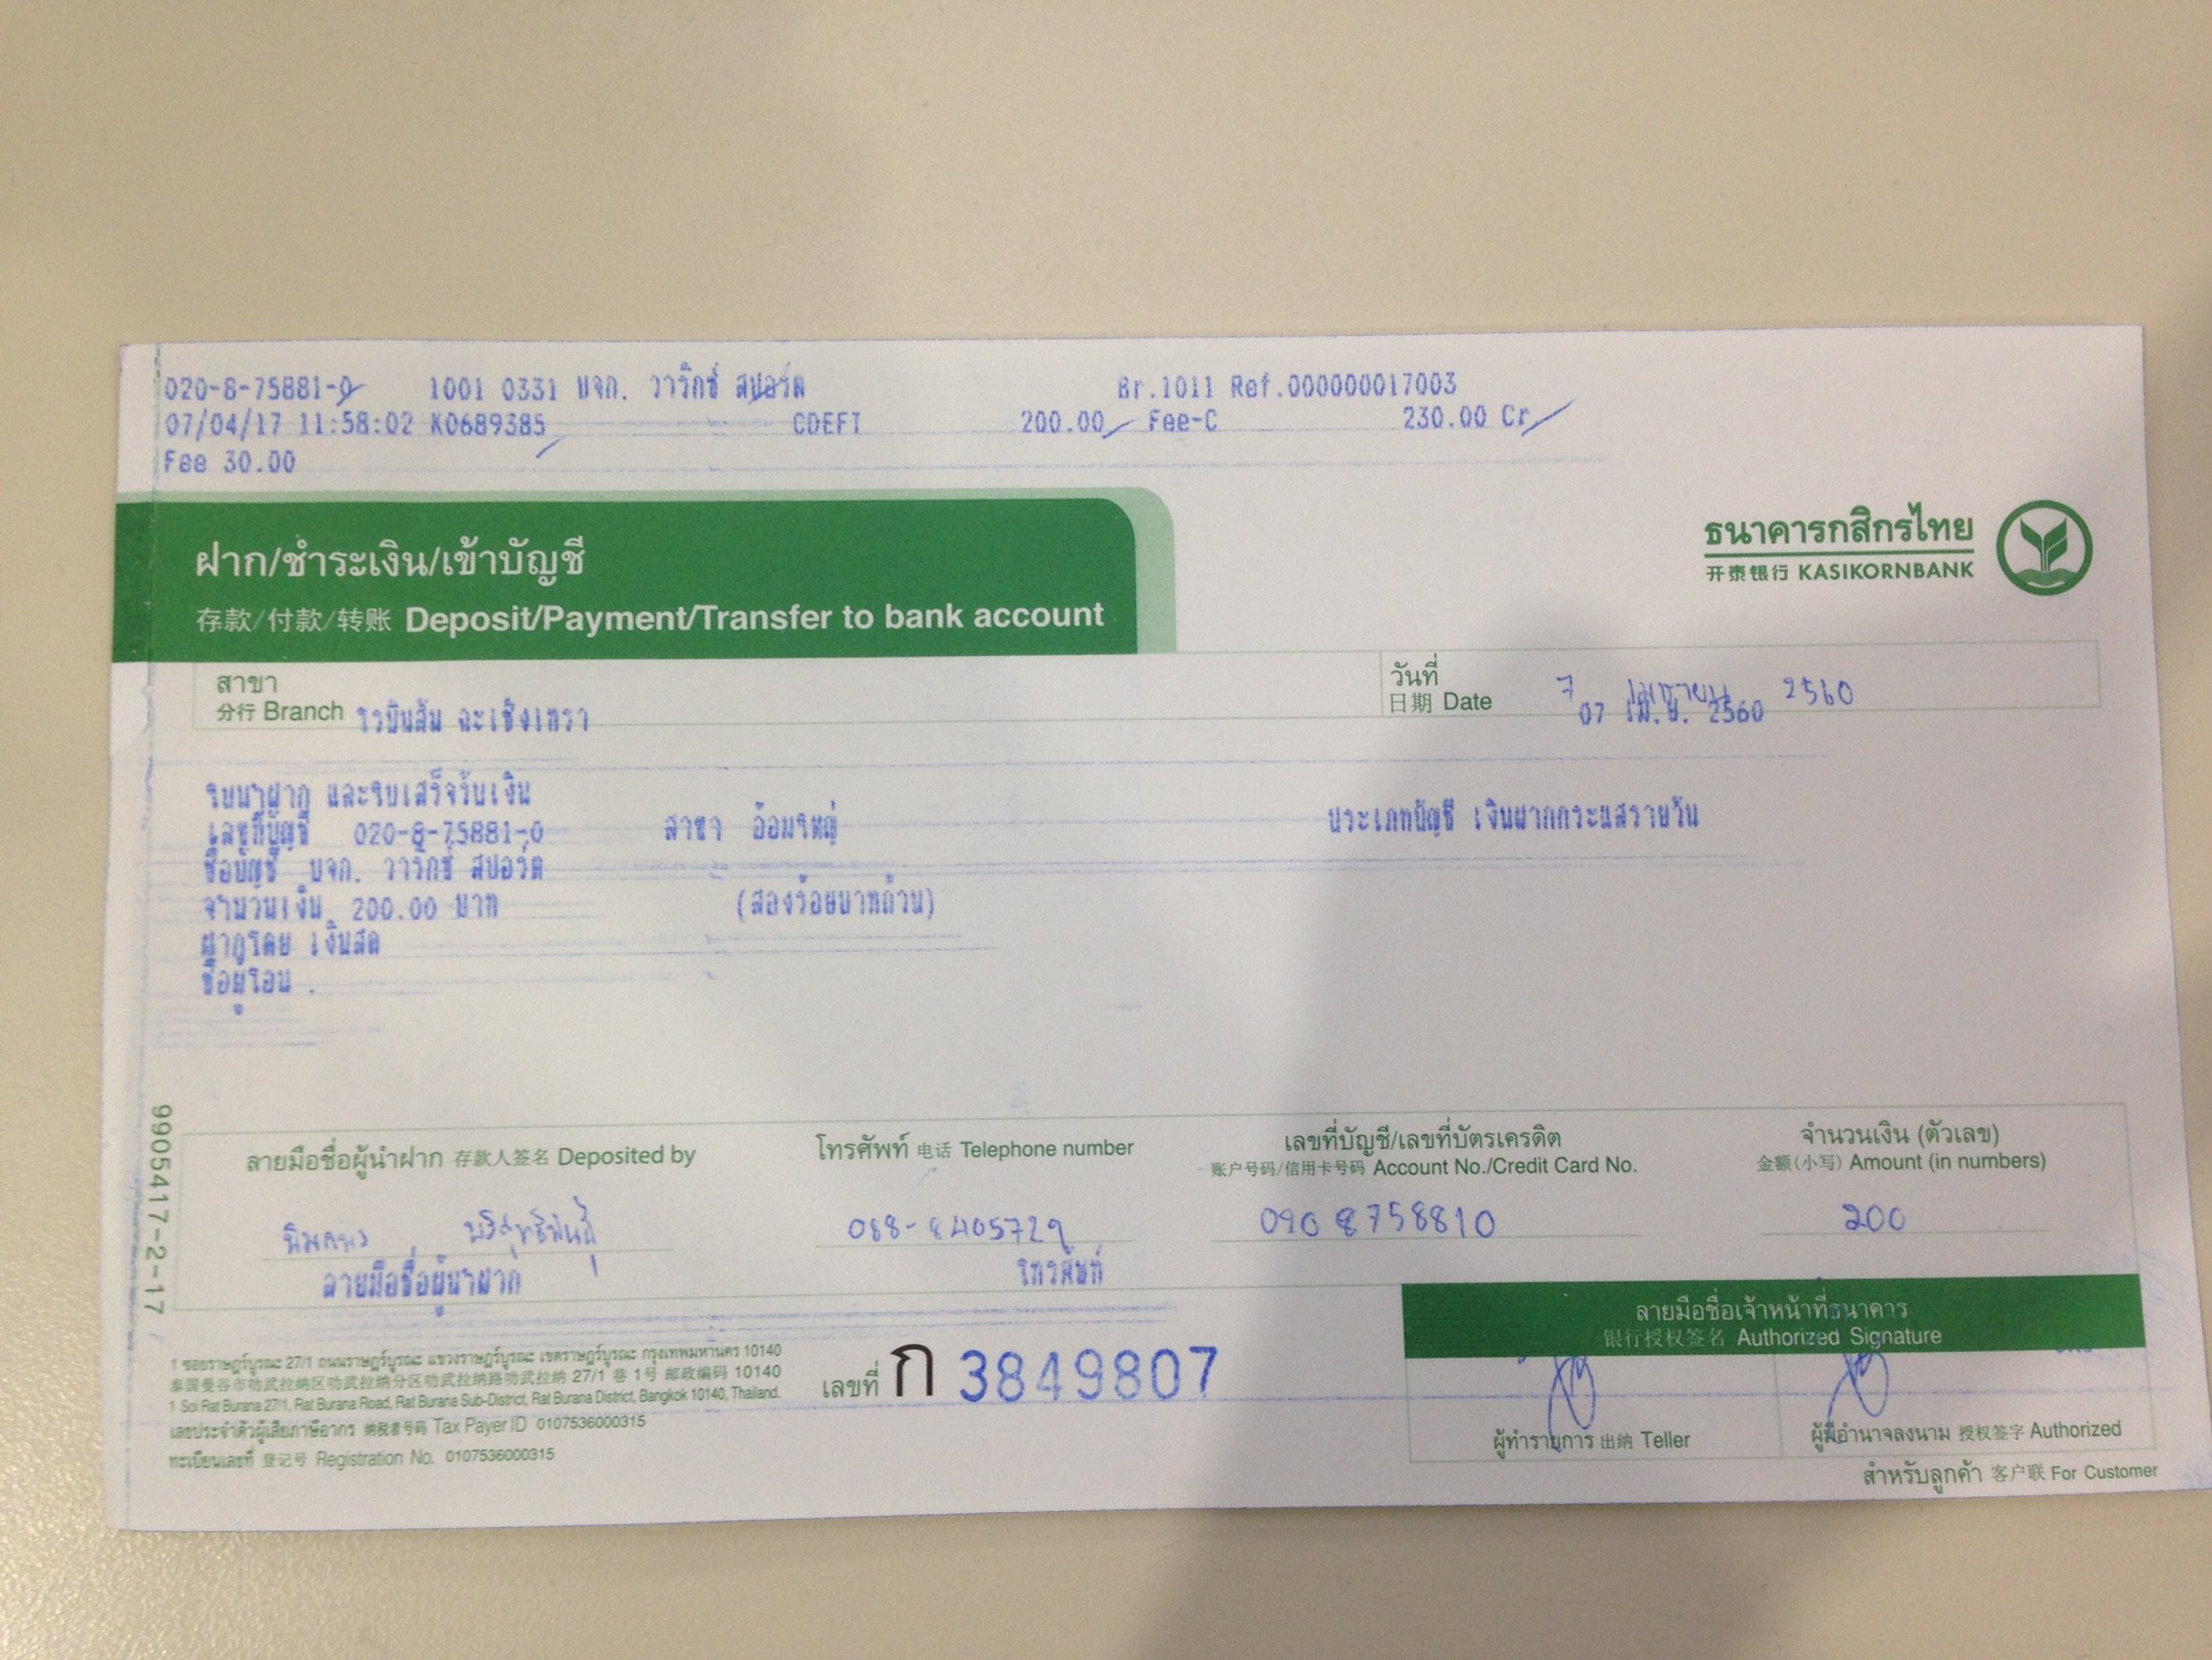 020-8-75881-0 1001 0331 บจก. วาริกซ์ สปอร์ต Br.1011 Ref.000000017003
07/04/17 11:58:02 K0689385 CDEFT 200.00 Fee-C 230.00 Cr
Fee 30.00
ฝาก/ชำระเงิน/เข้าบัญชี
存款/付款/转账 Deposit/Payment/Transfer to bank account
ธนาคารกสิกรไทย
开泰银行 KASIKORNBANK
สาขา
分行 Branch โรบินสัน ฉะเชิงเทรา
วันที่
日期 Date 7 เมษายน 2560
07 เม.ย. 2560
ใบนำฝาก และใบเสร็จรับเงิน
เลขที่บัญชี 020-8-75881-0 สาขา อ้อมใหญ่ ประเภทบัญชี เงินฝากกระแสรายวัน
ชื่อบัญชี บจก. วาริกซ์ สปอร์ต
จำนวนเงิน 200.00 บาท (สองร้อยบาทถ้วน)
ฝากโดย เงินสด
ชื่อผู้โอน .
9905417-2-17
ลายมือชื่อผู้นำฝาก 存款人签名 Deposited by
โทรศัพท์ 电话 Telephone number
เลขที่บัญชี/เลขที่บัตรเครดิต
账户号码/信用卡号码 Account No./Credit Card No.
จำนวนเงิน (ตัวเลข)
金额(小写) Amount (in numbers)
0208758810 200
ลายมือชื่อผู้นำฝาก โทรศัพท์
ลายมือชื่อเจ้าหน้าที่ธนาคาร
银行授权签名 Authorized Signature
1 ซอยราษฎร์บูรณะ 27/1 ถนนราษฎร์บูรณะ แขวงราษฎร์บูรณะ เขตราษฎร์บูรณะ กรุงเทพมหานคร 10140
泰国曼谷市叻武拉纳区叻武拉纳分区叻武拉纳路叻武拉纳 27/1 巷 1号 邮政编码 10140
1 Soi Rat Burana 27/1, Rat Burana Road, Rat Burana Sub-District, Rat Burana District, Bangkok 10140, Thailand.
เลขประจำตัวผู้เสียภาษีอากร 纳税者号码 Tax Payer ID 0107536000315
ทะเบียนเลขที่ 登记号 Registration No. 0107536000315
เลขที่ ก 3849807
ผู้ทำรายการ 出纳 Teller
ผู้มีอำนาจลงนาม 授权签字 Authorized
สำหรับลูกค้า 客户联 For Customer